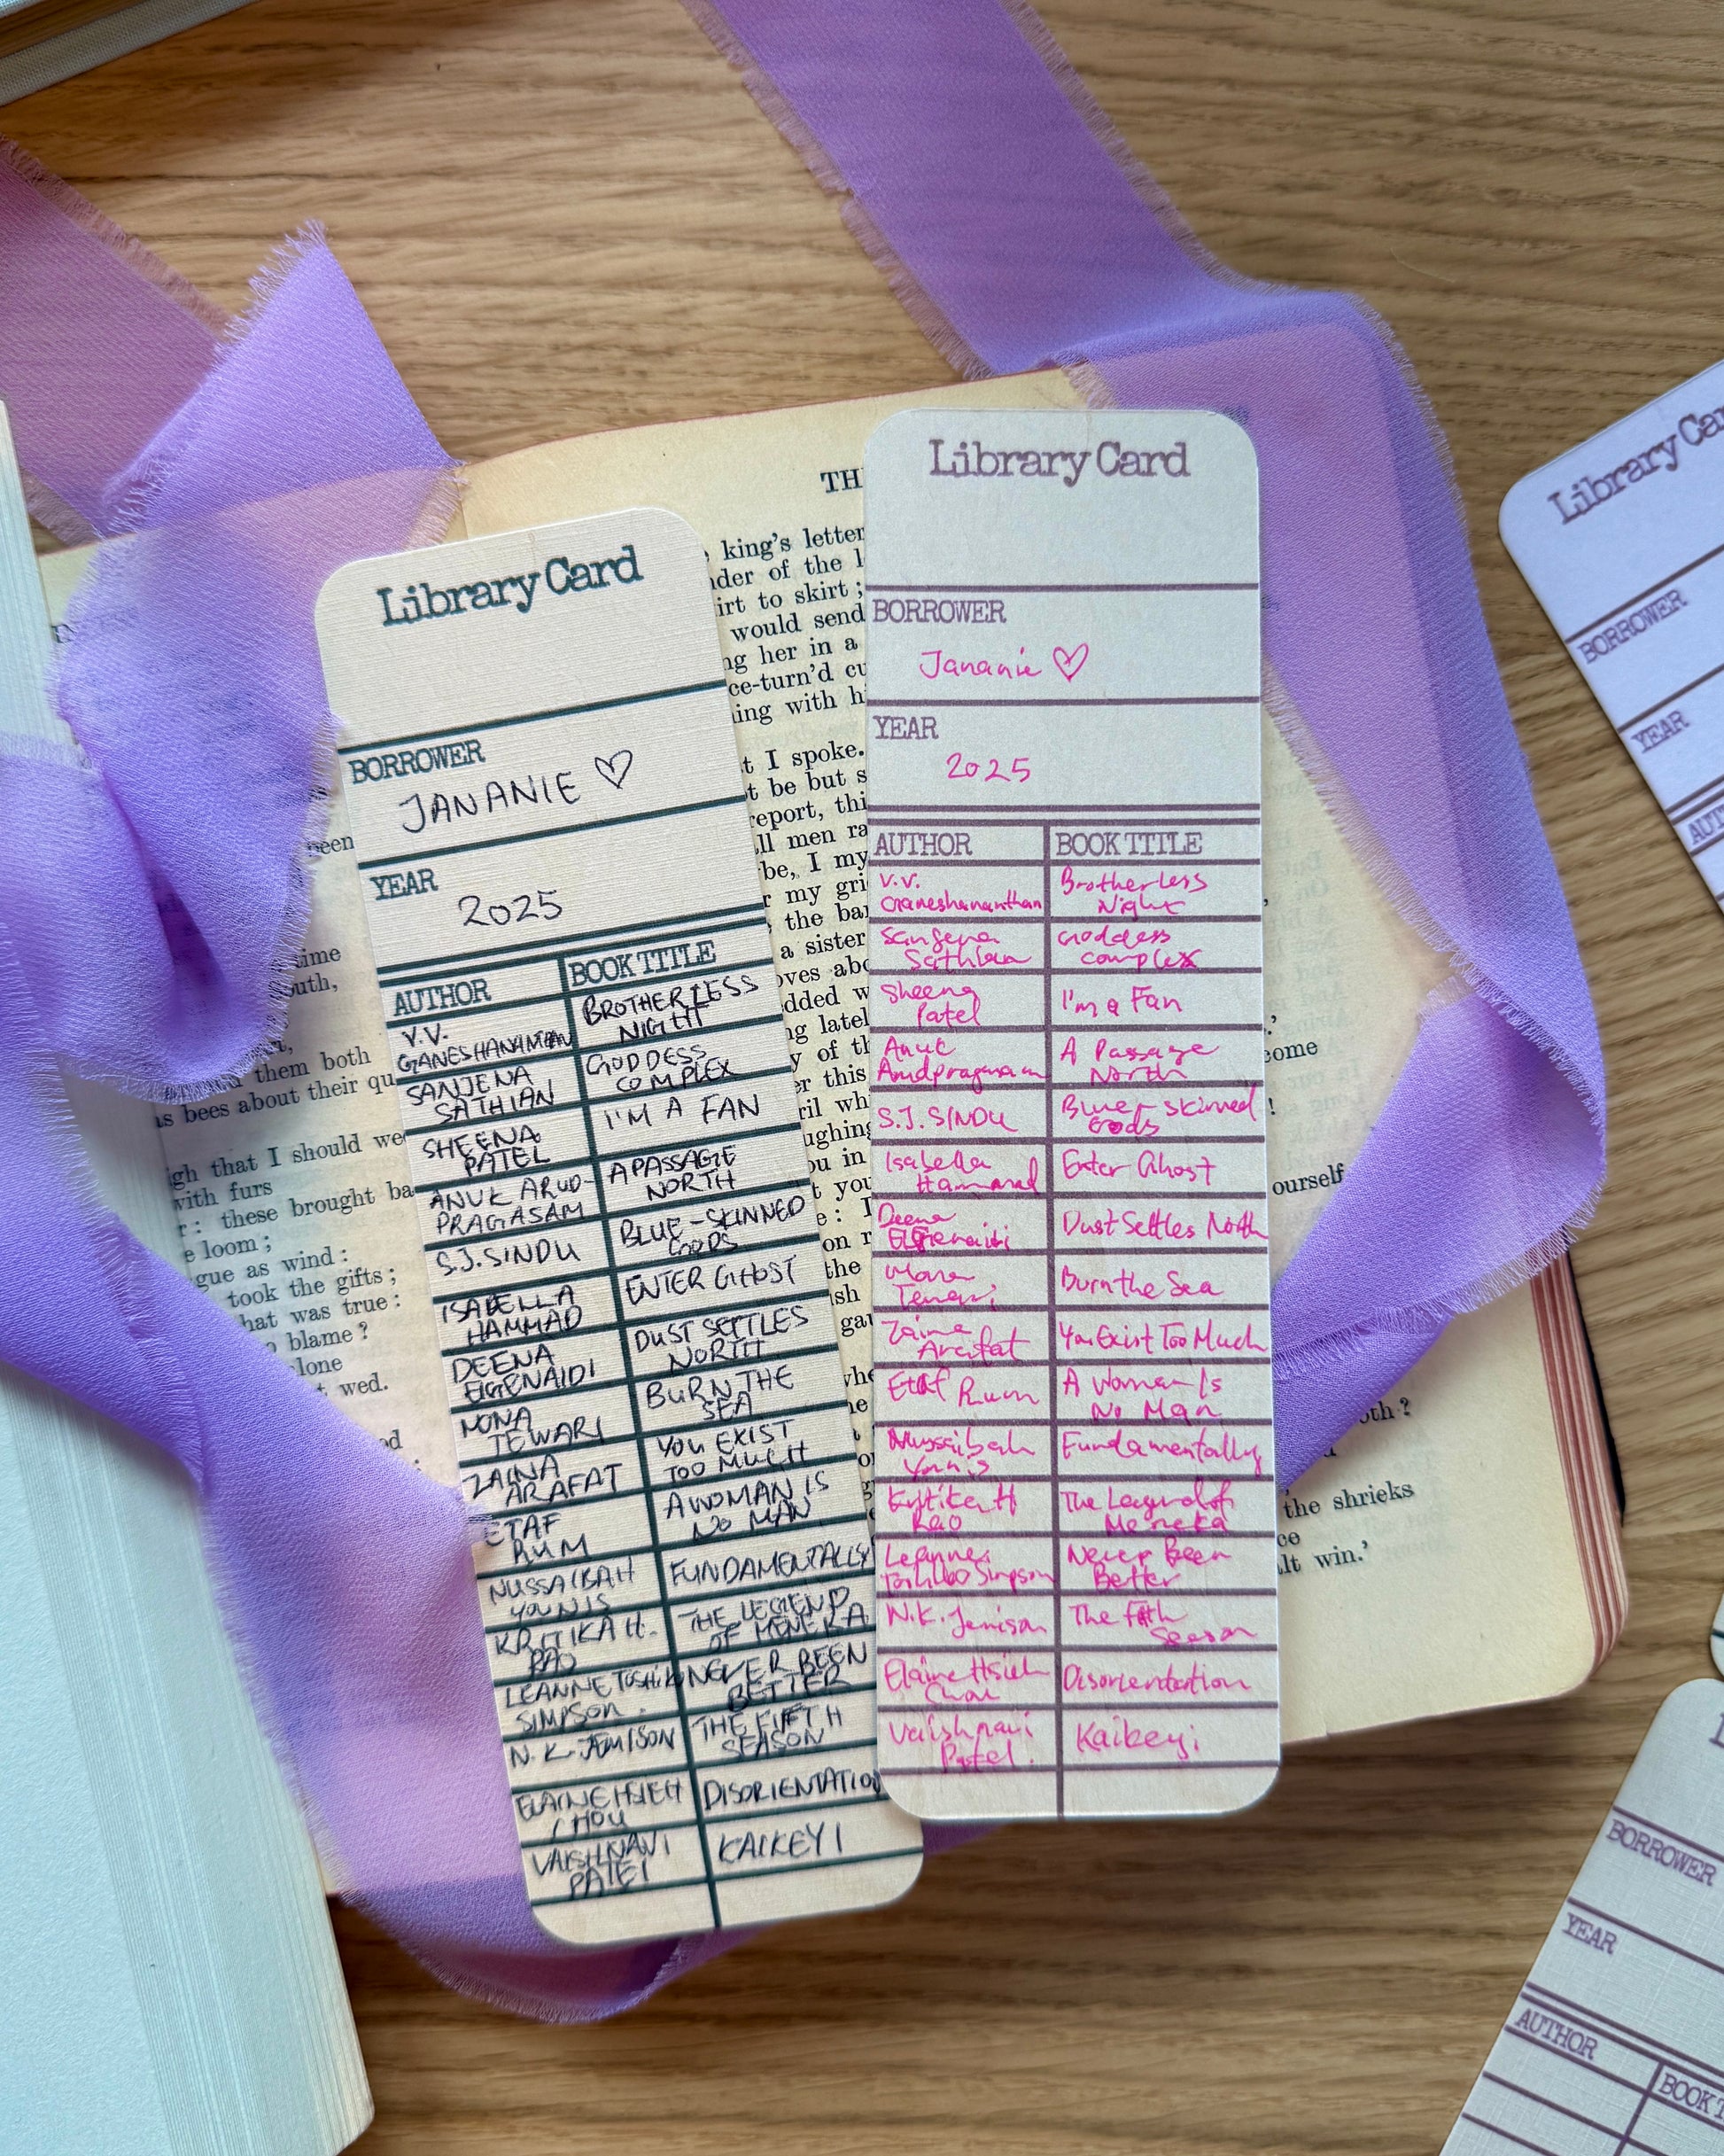 Library Card
BORROWER
JANANIE ♡
YEAR
2025
AUTHOR BOOK TITLE
V.V. GANESHANANTHAN BROTHERLESS NIGHT
SANJENA SATHIAN GODDESS COMPLEX
SHEENA PATEL I'M A FAN
ANUK ARUD-PRAGASAM A PASSAGE NORTH
S.J. SINDU BLUE-SKINNED GODS
ISABELLA HAMMAD ENTER GHOST
DEENA ElGENAIDI DUST SETTLES NORTH
MONA TEWARI BURN THE SEA
ZAINA ARAFAT YOU EXIST TOO MUCH
ETAF RUM A WOMAN IS NO MAN
NUSSAIBAH YOUNIS FUNDAMENTALLY
KRITIKA H. RAO THE LEGEND OF MENEKA
LEANNE TOSHIKO SIMPSON NEVER BEEN BETTER
N.K. JEMISON THE FIFTH SEASON
ELAINE HSIEH CHOU DISORIENTATION
VAISHNAVI PATEL KAIKEYI
Library Card
BORROWER
Jananie ♡
YEAR
2025
AUTHOR BOOK TITLE
V.V. Ganeshananthan Brotherless Night
Sanjena Sathian Goddess Complex
Sheena Patel I'm a Fan
Anuk Arudpragasam A Passage North
S.J. SINDU Blue-skinned Gods
Isabella Hammad Enter Ghost
Deena ElGenaidi Dust Settles North
Mona Tewari Burn the Sea
Zaina Arafat You Exist Too Much
Etaf Rum A Woman Is No Man
Nussaibah Younis Fundamentally
Kritika H Rao The Legend of Meneka
Leanne Toshiko Simpson Never Been Better
N.K. Jemison The Fifth Season
Elaine Hsieh Chou Disorientation
Vaishnavi Patel Kaikeyi
TH
king's letter
of the
irt to skirt;
would send
her in a
ce-turn'd
with
I spoke.
be but
report,
men
be, I my
my
the
a sister
this
been
time
them both
as bees about their
that I should
with furs
these brought
loom;
as wind:
took the gifts;
hat was true:
blame?
wed.
come
ourself
the shrieks
win.'
Library
BORROWER
YEAR
BORROWER
YEAR
AUTHOR
BOOK